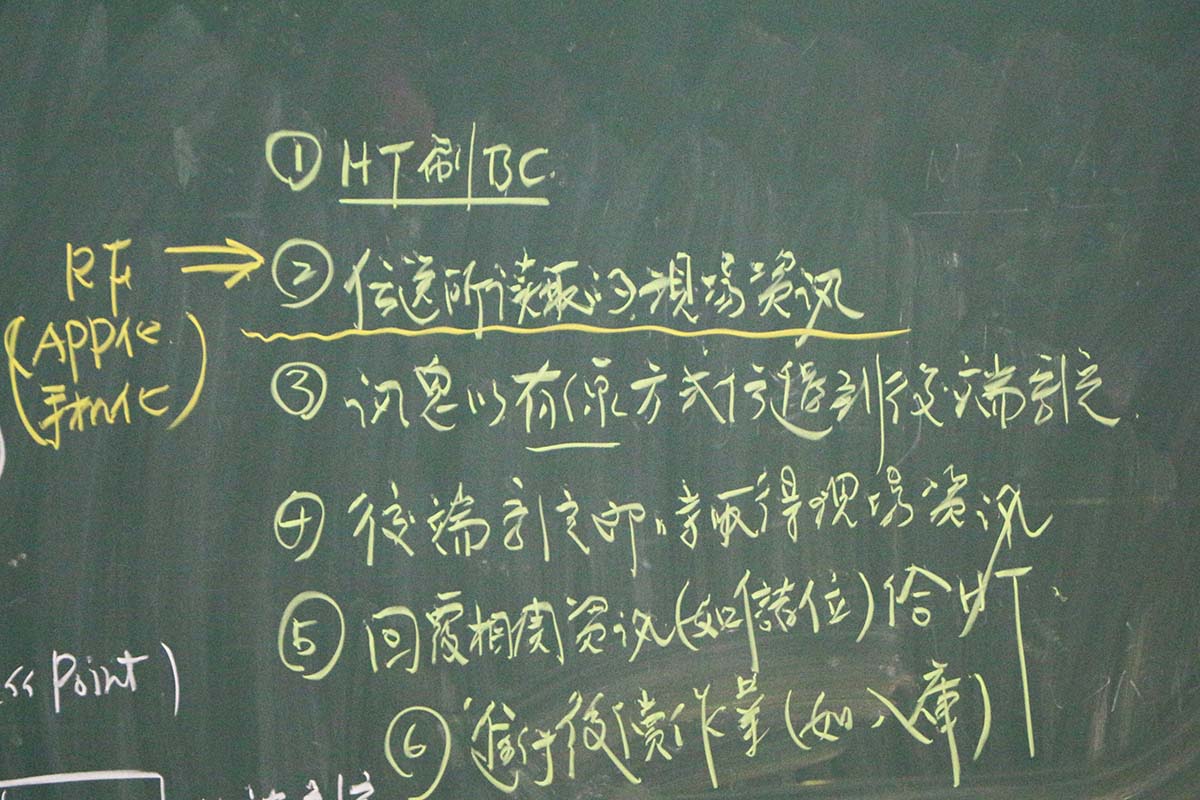 ① HT刷BC
RF
② 傳送所读取的現場資讯
(APP化
手机化)
③ 讯息以有線方式傳遞到後端系統
④ 後端系統即時取得現場資讯
⑤ 回覆相關資讯(如儲位)給HT
<< Point)
⑥ 進行後續作業(如入庫)